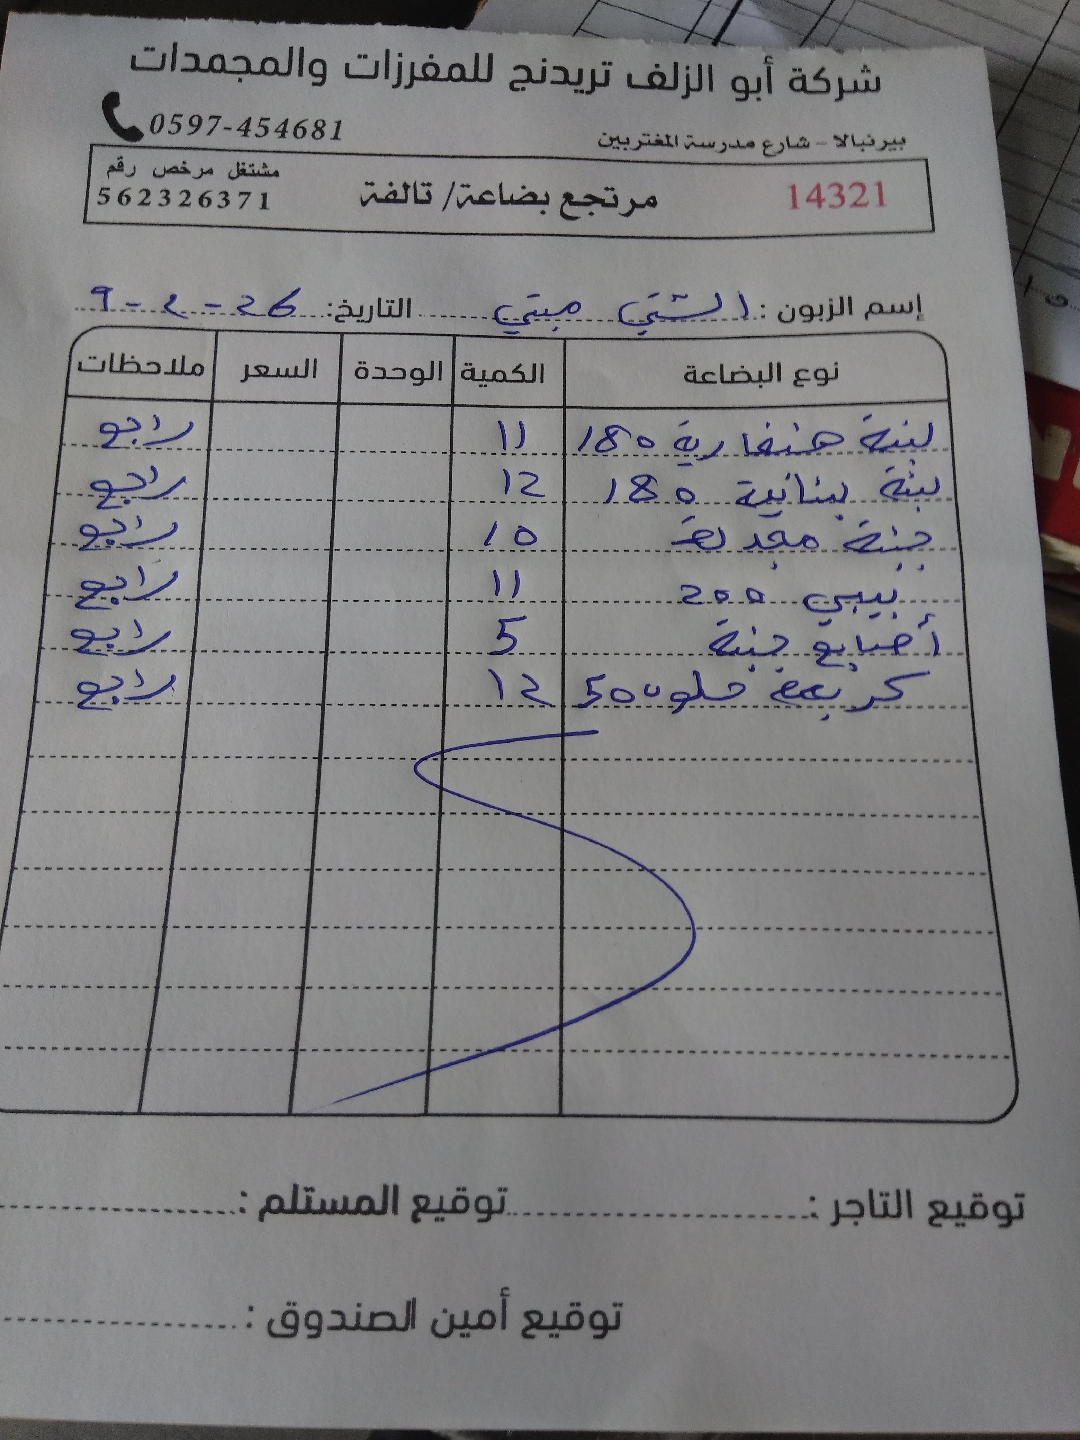 شركة أبو الزلف تريدنج للمفرزات والمجمدات
بيرنبالا - شارع مدرسة المغتربين
0597-454681
14321
مرتجع بضاعة/ تالفة
مشتغل مرخص رقم
562326371
إسم الزبون : التاريخ: 26-2-9
نوع البضاعة الكمية الوحدة السعر ملاحظات
لبنة هنغارية 180 11 راجع
لبنة لبنانية 180 12 راجع
جبنة مجدلة 10 راجع
بيبي 200 11 راجع
أصابع جبنة 5 راجع
كريمة حلو 500 12 راجع
توقيع التاجر : توقيع المستلم :
توقيع أمين الصندوق :